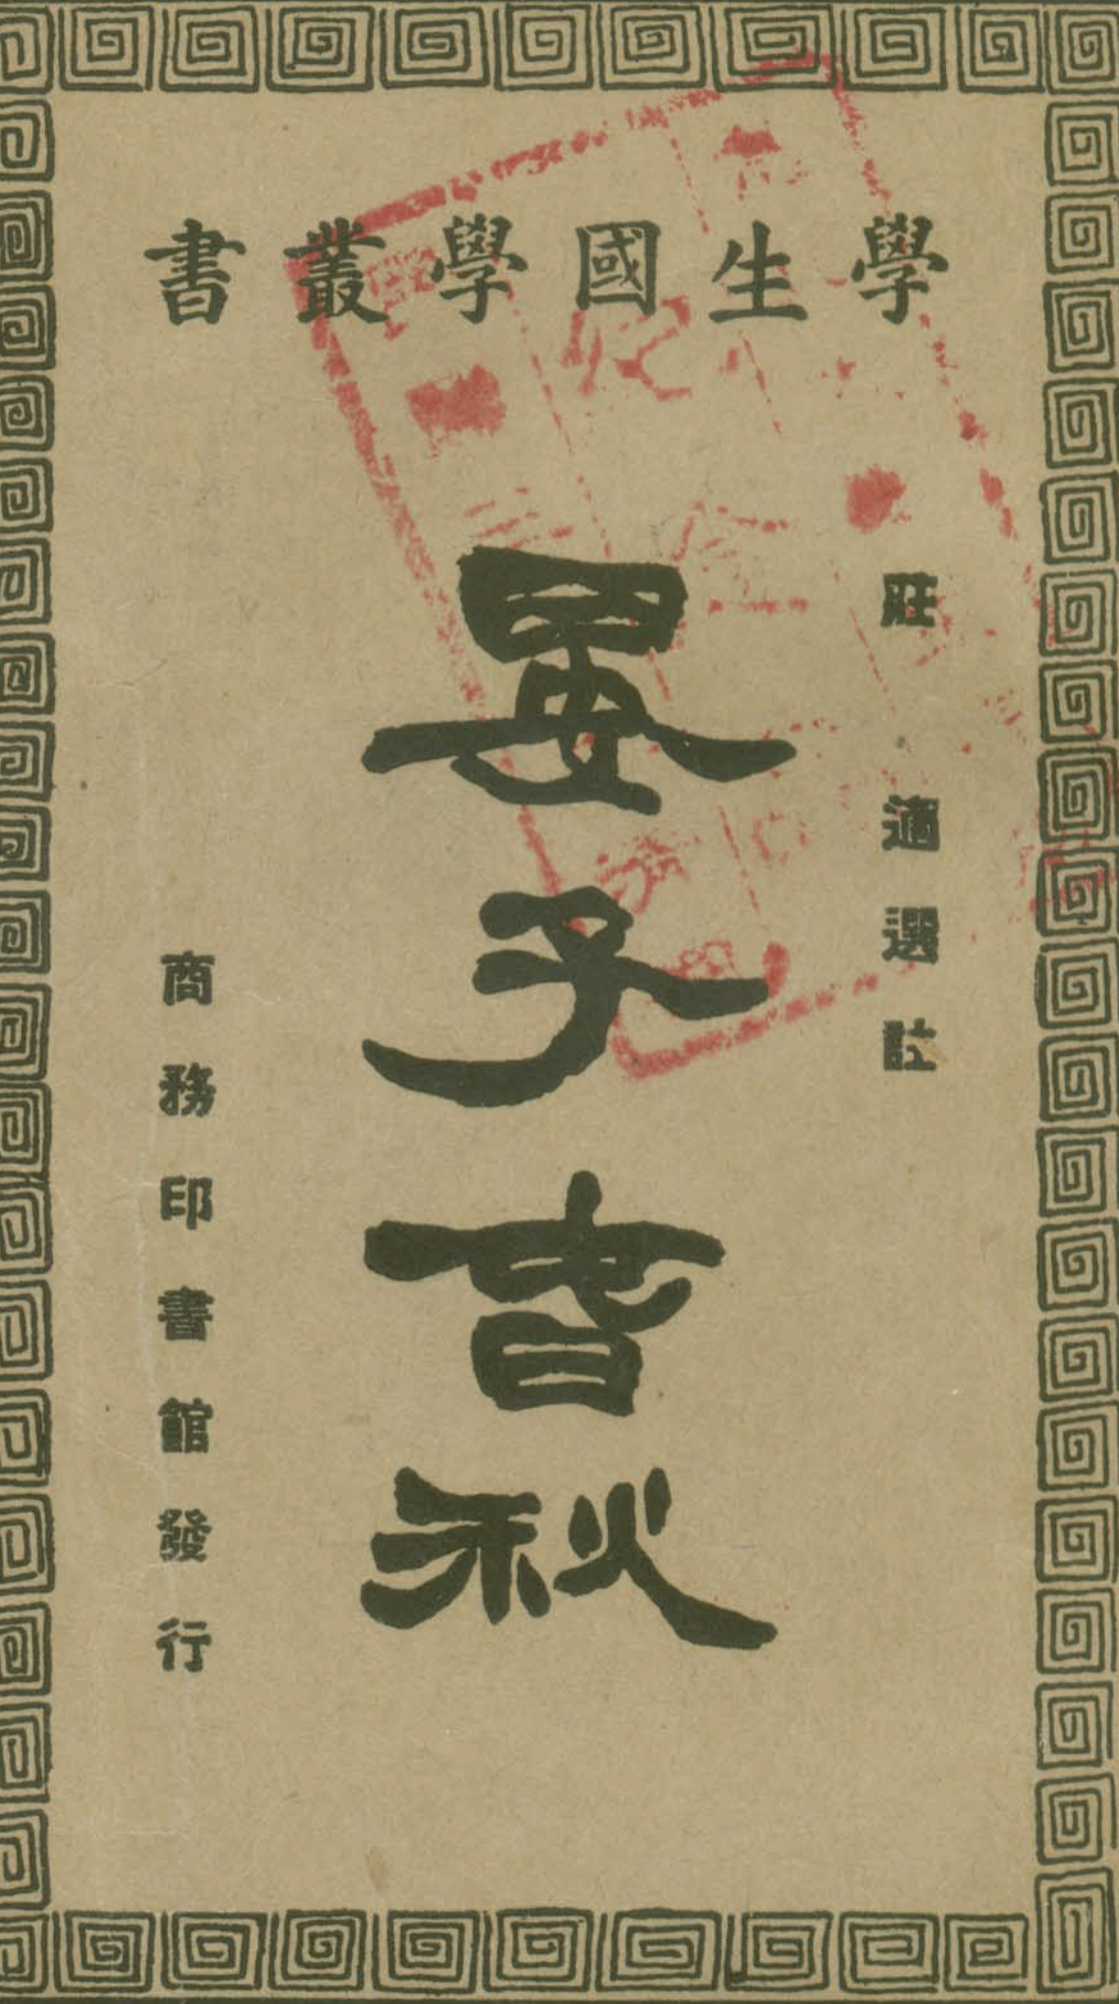 學生國學叢書
莊適選註
晏子春秋
商務印書館發行